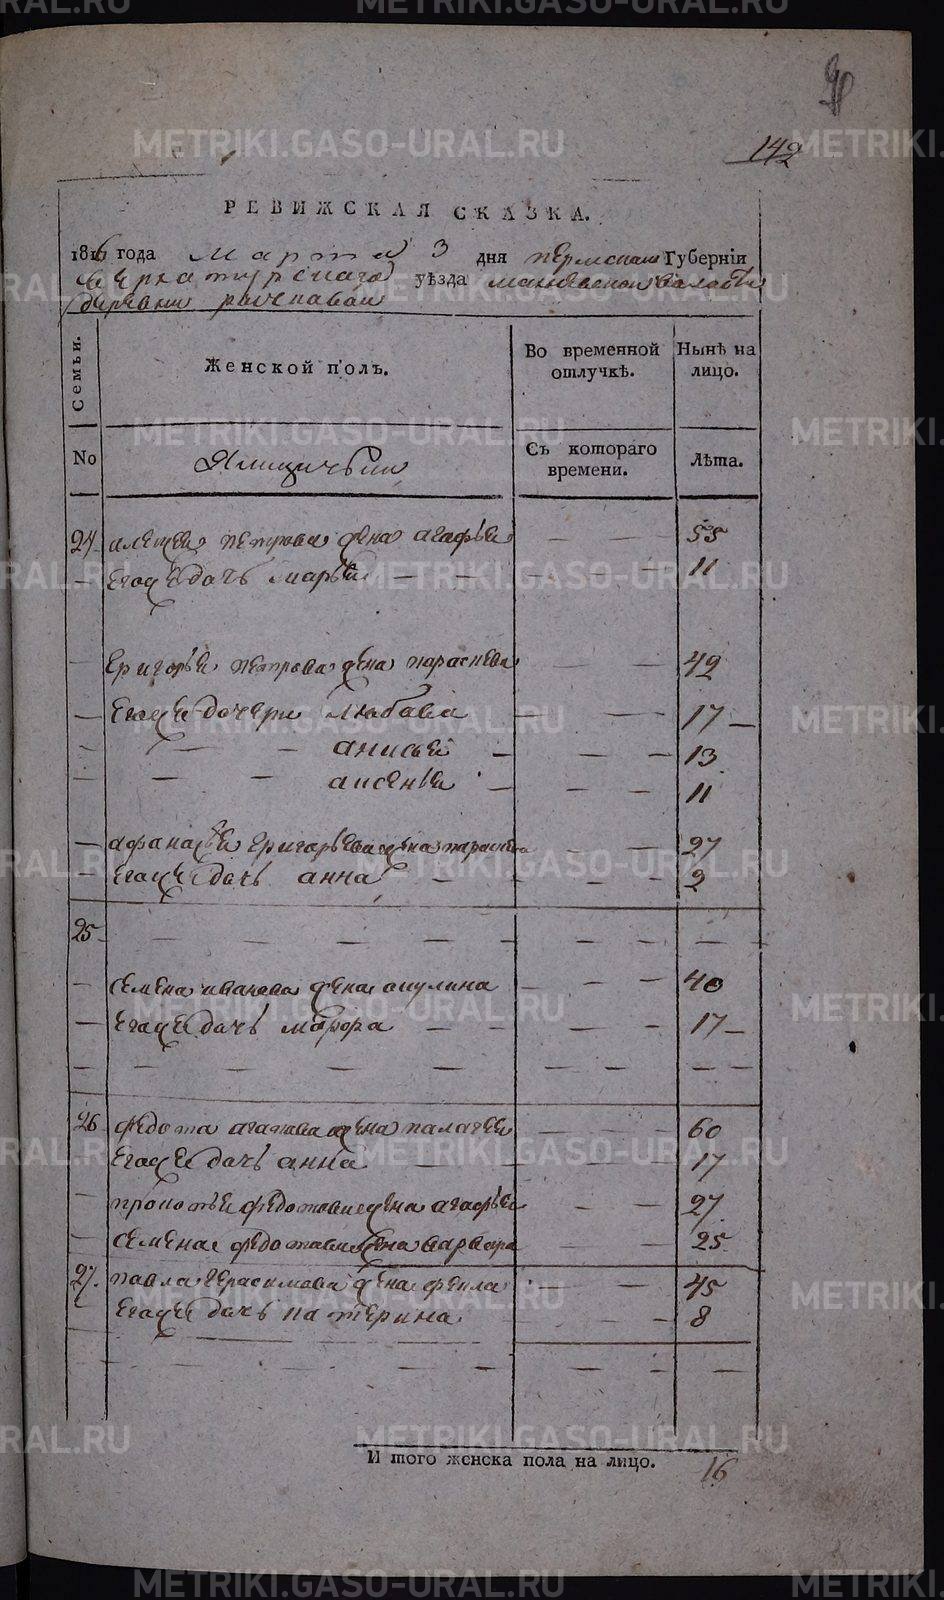 142
РЕВИЖСКАЯ СКАЗКА.
1816 года Марта 3 дня пермской Губернїи
верхатурскаго уѣзда махневской валости
деревни
Семьи. Женской полъ. Во временной отлучкѣ. Нынѣ на лицо.
No Съ котораго времени. Лѣта.
24 алеѯеѧ петрова жена агафьѧ — — 55
— егоже дочь марьѧ — — — — 11
— григорьѧ петрова жена парасковьѧ — — 42
— егоже дочери любава — — — 17 —
— — — анисьѧ — — — 13
— — — аксеньѧ — — — 11
— афанасьѧ григорьева жена парасковьѧ — — 27
— егоже дочь анна — — — 2
25 — — — — — — — — —
— семена иванова жена акулина — — — 40
— егоже дочь мавра — — — — 17 —
— — — — — — — — — —
26 федота агапова жена палагеѧ — — — 60
егоже дочь анна — — — 17
— прокопьѧ федотова жена агафьѧ — — — 27
— семена федотова жена варвара — — 25
27. павла герасимова жена фекла — — 45
егоже дочь катерина — — 8
— — — — — — — —
И того женска пола на лицо. 16
METRIKI.GASO-URAL.RU